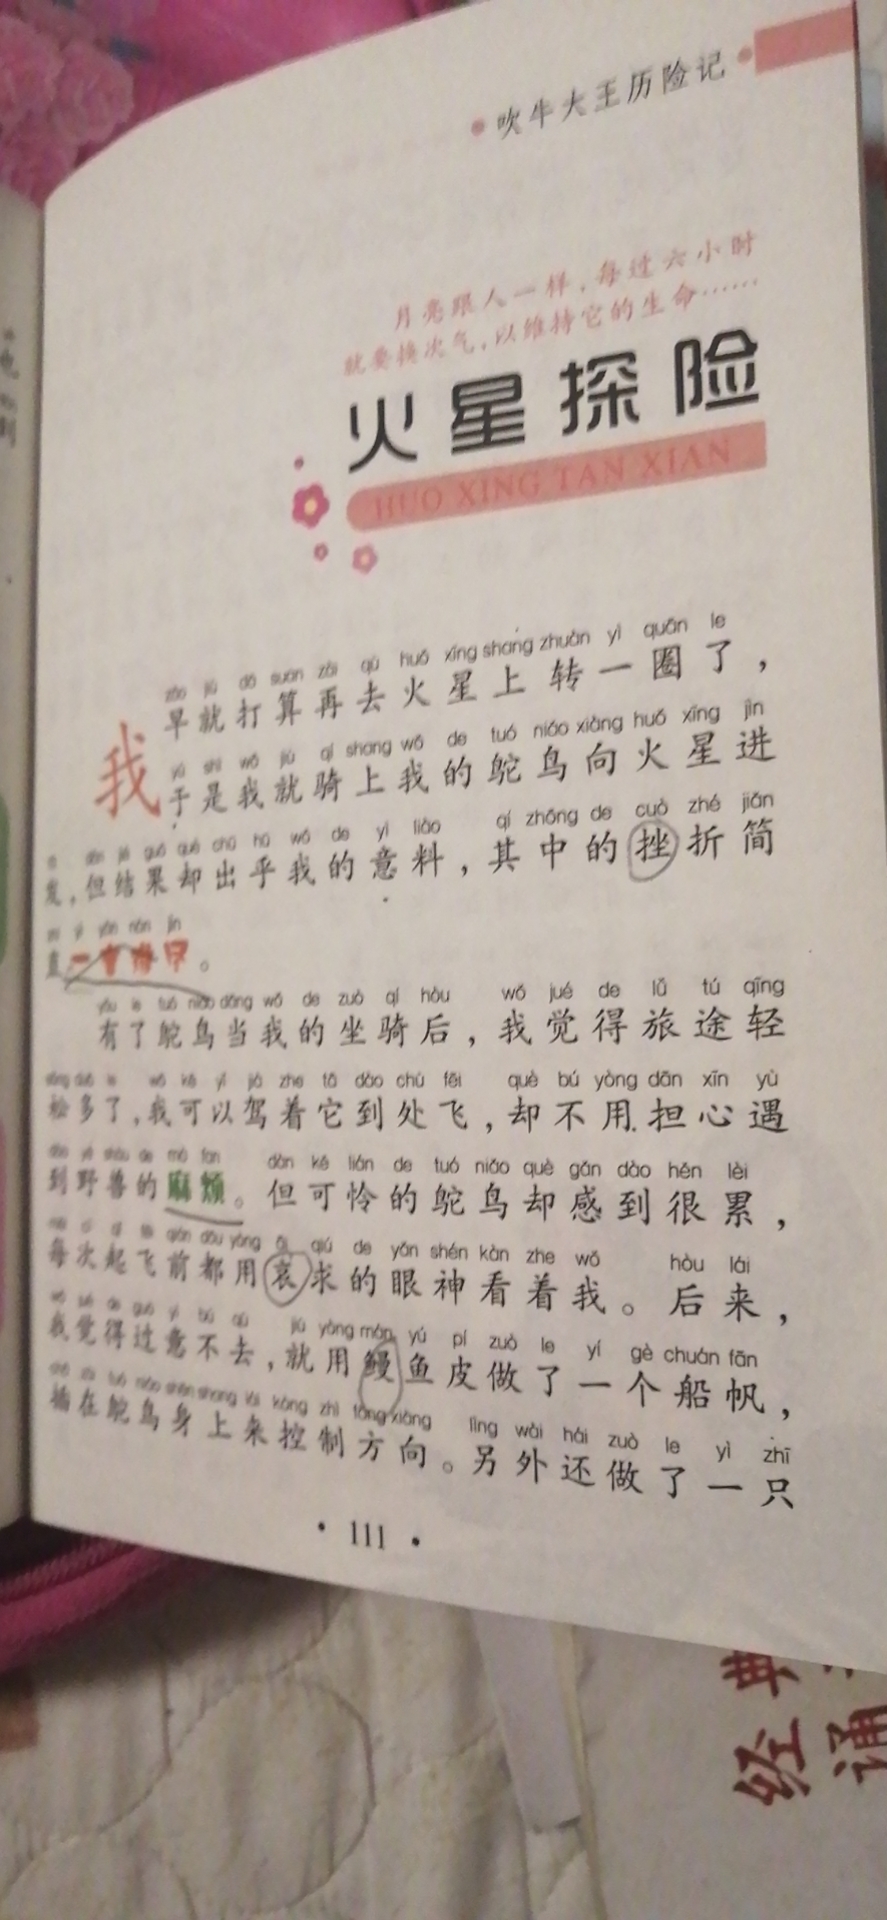 吹牛大王历险记
月亮跟人一样，每过六小时
就要换次气，以维持它的生命……
火星探险
HUO XING TAN XIAN
zǎo jiù dǎ suan zài qù huǒ xīng shang zhuàn yì quān le
我早就打算再去火星上转一圈了，
yú shì wǒ jiù qí shang wǒ de tuó niǎo xiàng huǒ xīng jìn
于是我就骑上我的鸵鸟向火星进
fā dàn jié guǒ què chū hū wǒ de yì liào qí zhōng de cuò zhé jiǎn
发，但结果却出乎我的意料，其中的挫折简
zhí yì yán nán jìn
直一言难尽。
yǒu le tuó niǎo dāng wǒ de zuò qí hòu wǒ jué de lǚ tú qīng
有了鸵鸟当我的坐骑后，我觉得旅途轻
sōng duō le wǒ kě yǐ jià zhe tā dào chù fēi què bú yòng dān xīn yù
松多了，我可以驾着它到处飞，却不用担心遇
dào yě shòu de má fan dàn kě lián de tuó niǎo què gǎn dào hěn lèi
到野兽的麻烦。但可怜的鸵鸟却感到很累，
měi cì qǐ fēi qián dōu yòng āi qiú de yǎn shén kàn zhe wǒ hòu lái
每次起飞前都用哀求的眼神看着我。后来，
wǒ jué de guò yì bú qù jiù yòng mán yú pí zuò le yí gè chuán fān
我觉得过意不去，就用鳗鱼皮做了一个船帆，
chā zài tuó niǎo shēn shang lái kòng zhì fāng xiàng lìng wài hái zuò le yì zhī
插在鸵鸟身上来控制方向。另外还做了一只
• 111 •
经典
诵